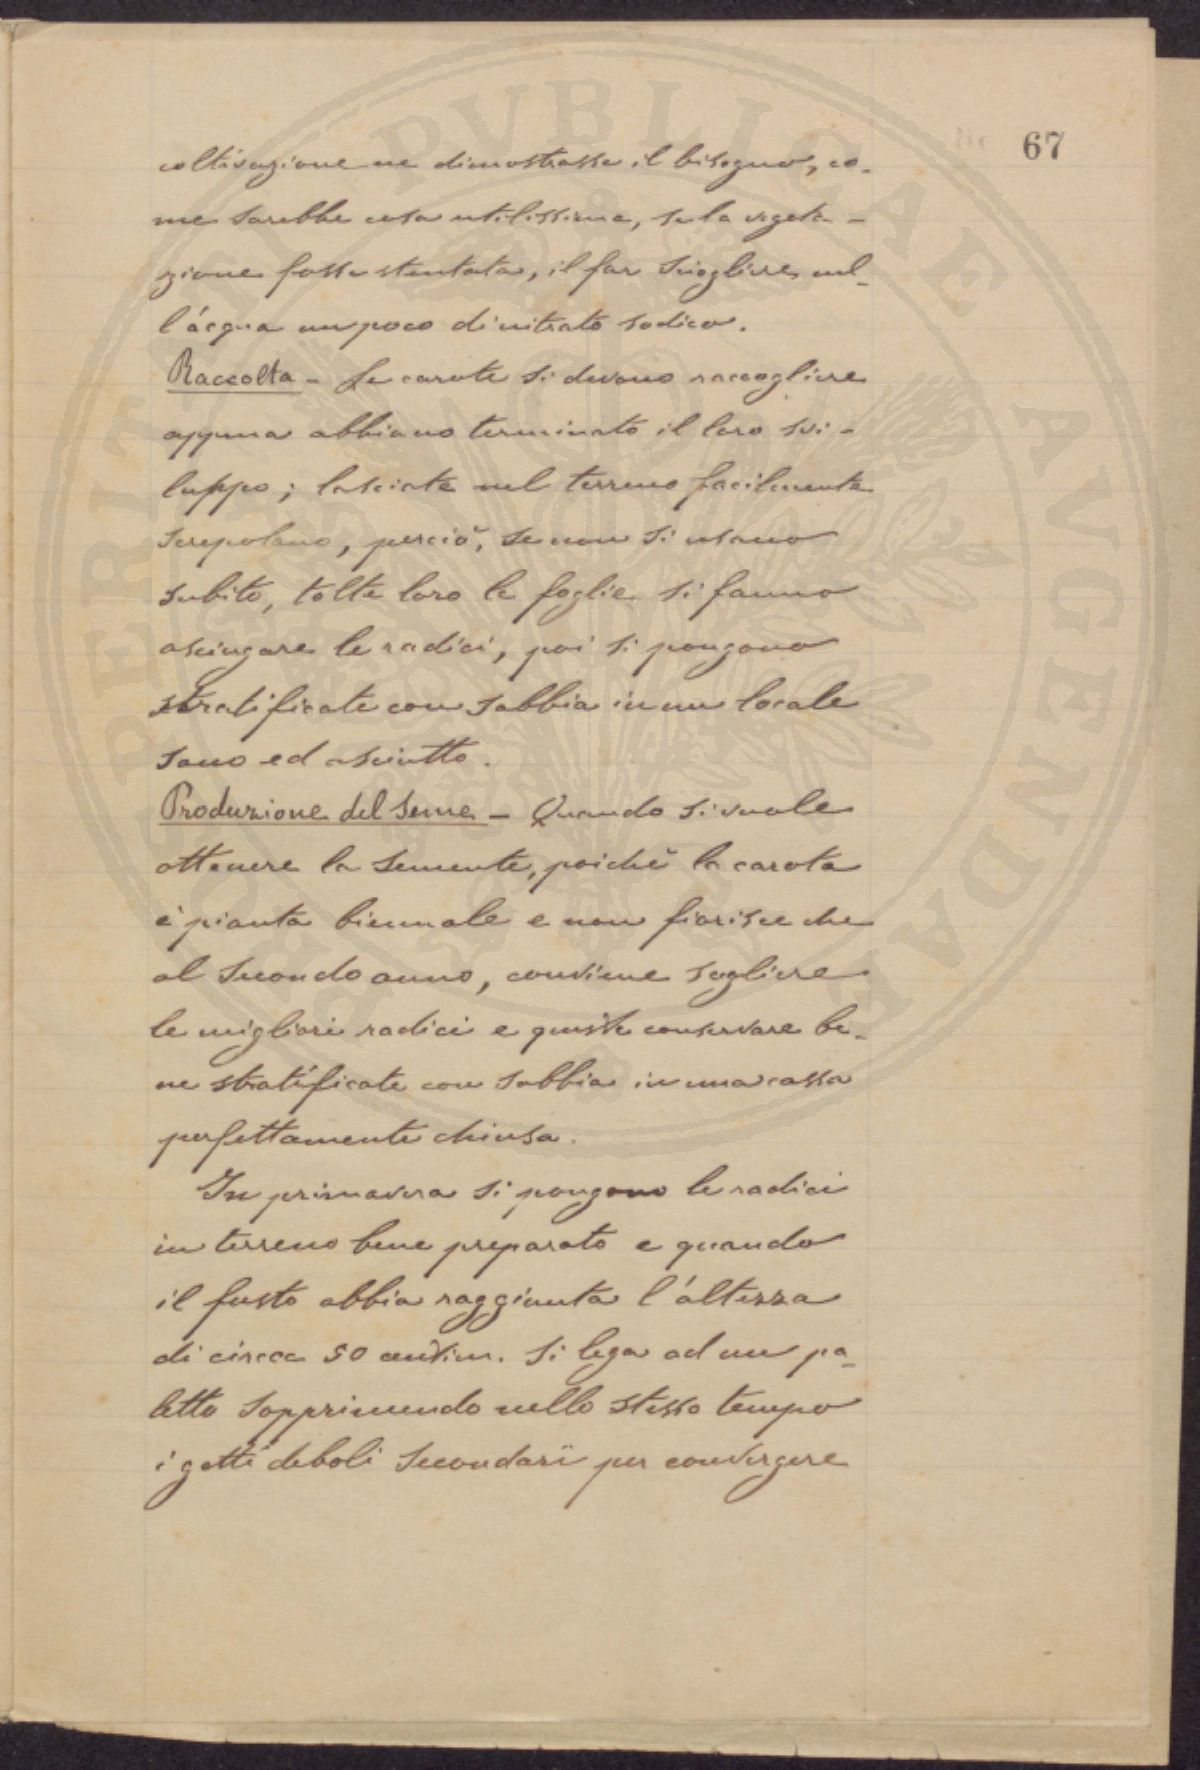 67
coltivazione ne dimostrasse il bisogno, co-
me sarebbe cosa utilissima, se la vegeta-
zione fosse stentata, il far sciogliere nel-
l'acqua un poco di nitrato sodico.
Raccolta - Le carote si devono raccogliere
appena abbiano terminato il loro svi-
luppo; lasciate nel terreno facilmente
screpolano, perciò, se non si usano
subito, tolte loro le foglie si fanno
asciugare le radici, poi si pongono
stratificate con sabbia in un locale
sano ed asciutto.
Produzione del seme - Quando si vuole
ottenere la semente, poichè la carota
è pianta biennale e non fiorisce che
al secondo anno, conviene scegliere
le migliori radici e queste conservare be-
ne stratificate con sabbia in una cassa
perfettamente chiusa.
In primavera si pongono le radici
in terreno bene preparato e quando
il fusto abbia raggiunta l'altezza
di circa 50 centim. si lega ad un pa-
letto sopprimendo nello stesso tempo
i getti deboli secondarî per convergere
PROSPERITATI PVBLICAE AVGENDAE